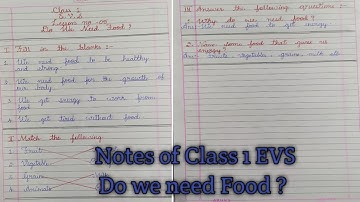 Class 1
E.V.S
Lesson no -08
Do We Need Food ?
I Fill in the blanks :-
1. We need food to be healthy
and strong.
2. We need food for the growth of
our body.
3. We get energy to work from
food
4. We get tired without food.
II Match the following
1. Fruits
2. Vegetable
3. Grains
4. Animals
III Answer the following questions :-
1. Why do we need food ?
Ans: We need food to get energy.
2. Name some food that gives us
energy ?
Ans: Fruits, vegetables, grains, milk
Notes of Class 1 EVS
Do we need Food ?